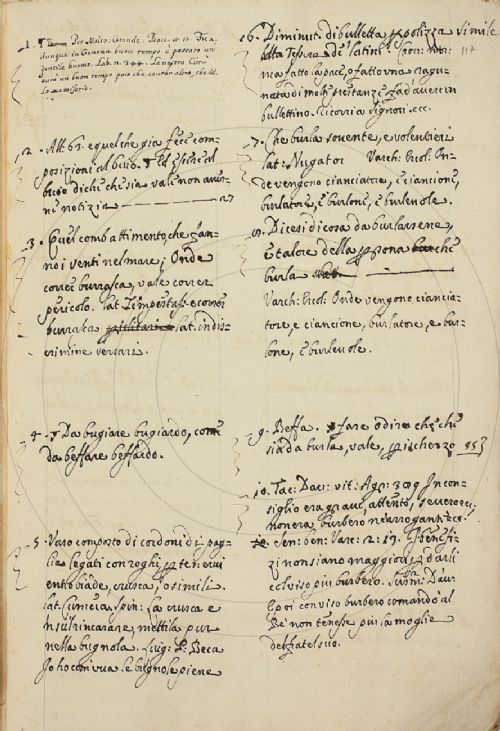 1. Per Molto. Grande. Bocc. n.
dunque in Genova buon tempo è passato un
gentile huomo. Lab. n. 244. La nostra Città
aurà un buon tempo poco che cantar altro, che del-
le miserie.
2. All. 63. e quel che già fece com-
posizioni al buio. Et esser al
buio di che che sia vale non aver-
ne notizia 27
3. Quel combattimento, che fan-
no i venti nel mare; Onde
correr burrasca, vale correr
pericolo. lat. Tempestas. e correr
burrasca lat. indis-
crimine versari.
4. Da bugiare bugiardo, come
da beffare beffardo.
5. Vaso composto di cordoni di pa-
glia legati con roghi, per tenervi
entro biade, crusca, e simili.
lat. Cumera. Spin: La crusca e
'nsu'l rincarare, mettila pur
nella bugnola. Luig: P: Beca
Io ho con uva le bugnole piene
6. Diminut. di bulletta, e polizza simile
detta Tessera da' latini. Cron: Mor:
fatto la pace, e fatto una ragu-
nata di molte sustanze, ad aver un
bullettino. Ci corri a signori. ecc.
117
7. Che burla sovente, e volentieri
lat: Nugator Varch: Ercol. On-
de vengono cianciatore, e ciancione,
burlatore, e burlone, e burlevole.
8. Dicesi di cosa da burlarsene,
e talora della persona che
burla
Varch: Ercol. Onde vengono ciancia-
tore, e ciancione, burlatore, e bur-
lone, e burlevole.
9. Beffa. fare o dire che che
sia da burla, vale, per ischerzo 253
10. Tac: Dav: vit: Agr: 399 In con-
siglio era grave, attento, severo ec.
non era burbero, nè arrogante ec.
Sen: ben: Varc: 2. 17. I benefi-
zi non siano maggiori per darli
col viso più burbero.
E poi con viso burbero comandò al
Re non tenesse più la moglie
del fratel suo.